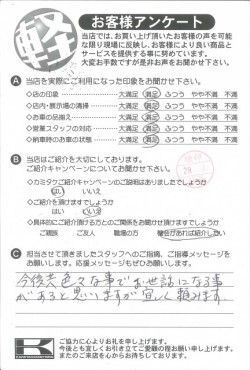 軽
お客様アンケート
当店では、お買い上げ頂いたお客様の声を可能
な限り現場に反映し、お客様により良い商品と
サービスを提供する事に努めています。
大変お手数ですが是非お声をお聞かせ下さい。
A 当店を実際にご利用になった印象をお聞かせ下さい。
◇店の印象 大満足 満足 ふつう やや不満 不満
◇店内・展示場の清掃 大満足 満足 ふつう やや不満 不満
◇お車の品揃え 大満足 満足 ふつう やや不満 不満
◇営業スタッフの対応 大満足 満足 ふつう やや不満 不満
◇納車時のお車の状態 大満足 満足 ふつう やや不満 不満
B 当店はご紹介を大切にしております。
ご紹介キャンペーンについてお聞かせ下さい。
◇カミタケご紹介キャンペーンのご説明はありましたでしょうか
はい いいえ
◇ご紹介を頂けますでしょうか
はい いいえ
◇具体的にご紹介頂ける方とのご関係をお聞かせ頂けますでしょうか
ご親族 ご友人 職場の方 機会があれば紹介したい
C 担当させて頂きましたスタッフへのご指摘、ご指導メッセージを
お願いします。応援メッセージもぜひお願いします。
今後共色々な事でお世話になる事
があると思いますが宜しく頼みます。
K
ご協力に心よりお礼を申し上げます。
今後とも宜しくお引き立てご愛顧の程お願い申し上げます。
またのご来店を心からお待ちしております。